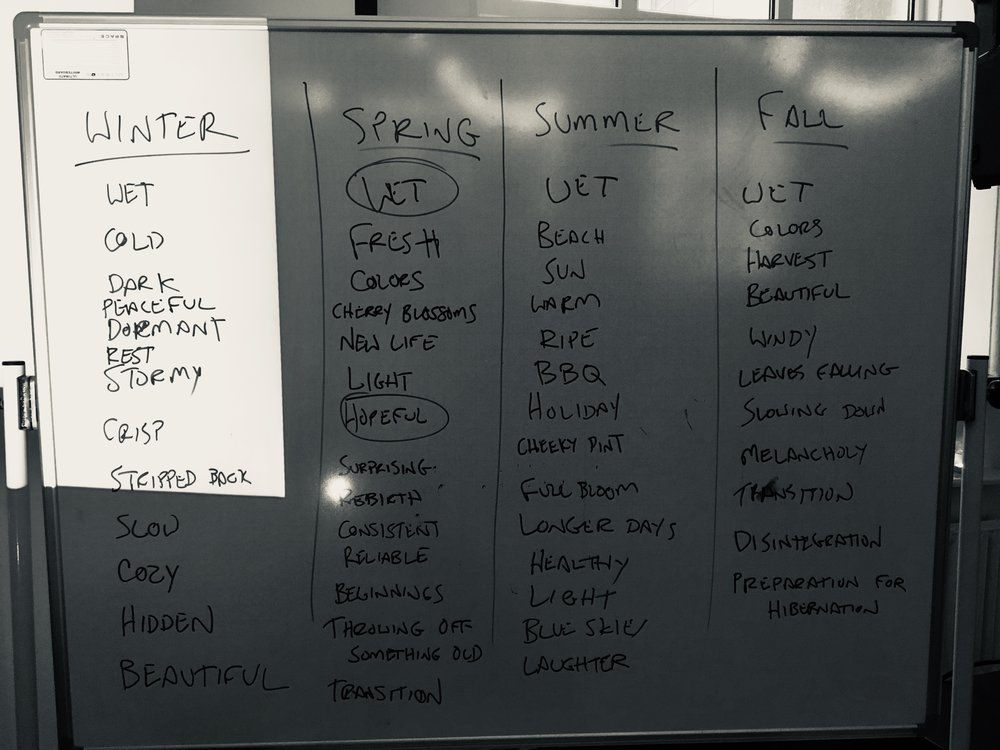 SPACE
ULTIMATE
WHITEBOARD
WINTER
WET
COLD
DARK
PEACEFUL
DORMANT
REST
STORMY
CRISP
STRIPPED BACK
SLOW
COZY
HIDDEN
BEAUTIFUL
SPRING
WET
FRESH
COLORS
CHERRY BLOSSOMS
NEW LIFE
LIGHT
HOPEFUL
SURPRISING
REBIRTH
CONSISTENT
RELIABLE
BEGINNINGS
THROWING OFF
SOMETHING OLD
TRANSITION
SUMMER
WET
BEACH
SUN
WARM
RIPE
BBQ
HOLIDAY
CHEEKY PINT
FULL BLOOM
LONGER DAYS
HEALTHY
LIGHT
BLUE SKIES
LAUGHTER
FALL
WET
COLORS
HARVEST
BEAUTIFUL
WINDY
LEAVES FALLING
SLOWING DOWN
MELANCHOLY
TRANSITION
DISINTEGRATION
PREPARATION FOR
HIBERNATION